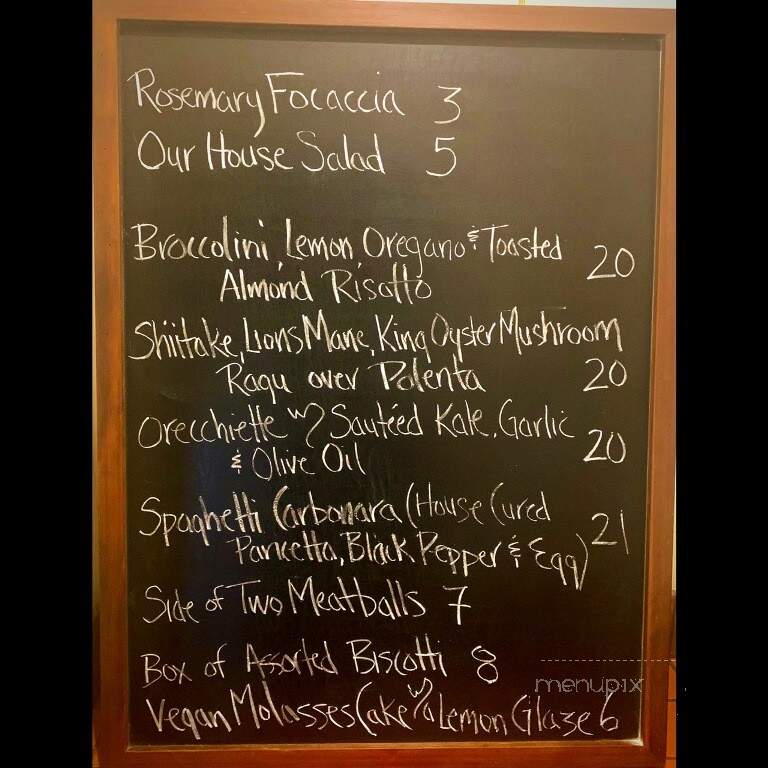 Rosemary Focaccia 3
Our House Salad 5
Broccolini, Lemon, Oregano & Toasted
Almond Risotto 20
Shiitake, Lions Mane, King Oyster Mushroom
Ragu over Polenta 20
Orecchiette w/ Sautéed Kale, Garlic
& Olive Oil 20
Spaghetti Carbonara (House Cured
Pancetta, Black Pepper & Egg) 21
Side of Two Meatballs 7
Box of Assorted Biscotti 8
menupix
Vegan Molasses Cake w/a Lemon Glaze 6